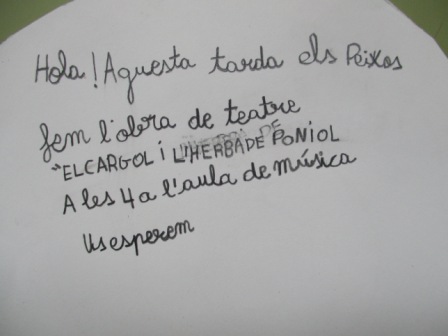 Hola! Aquesta tarda els Peixos
fem l'obra de teatre
"EL CARGOL i L'HERBA DE PONIOL
A les 4 a l'aula de música
Us esperem